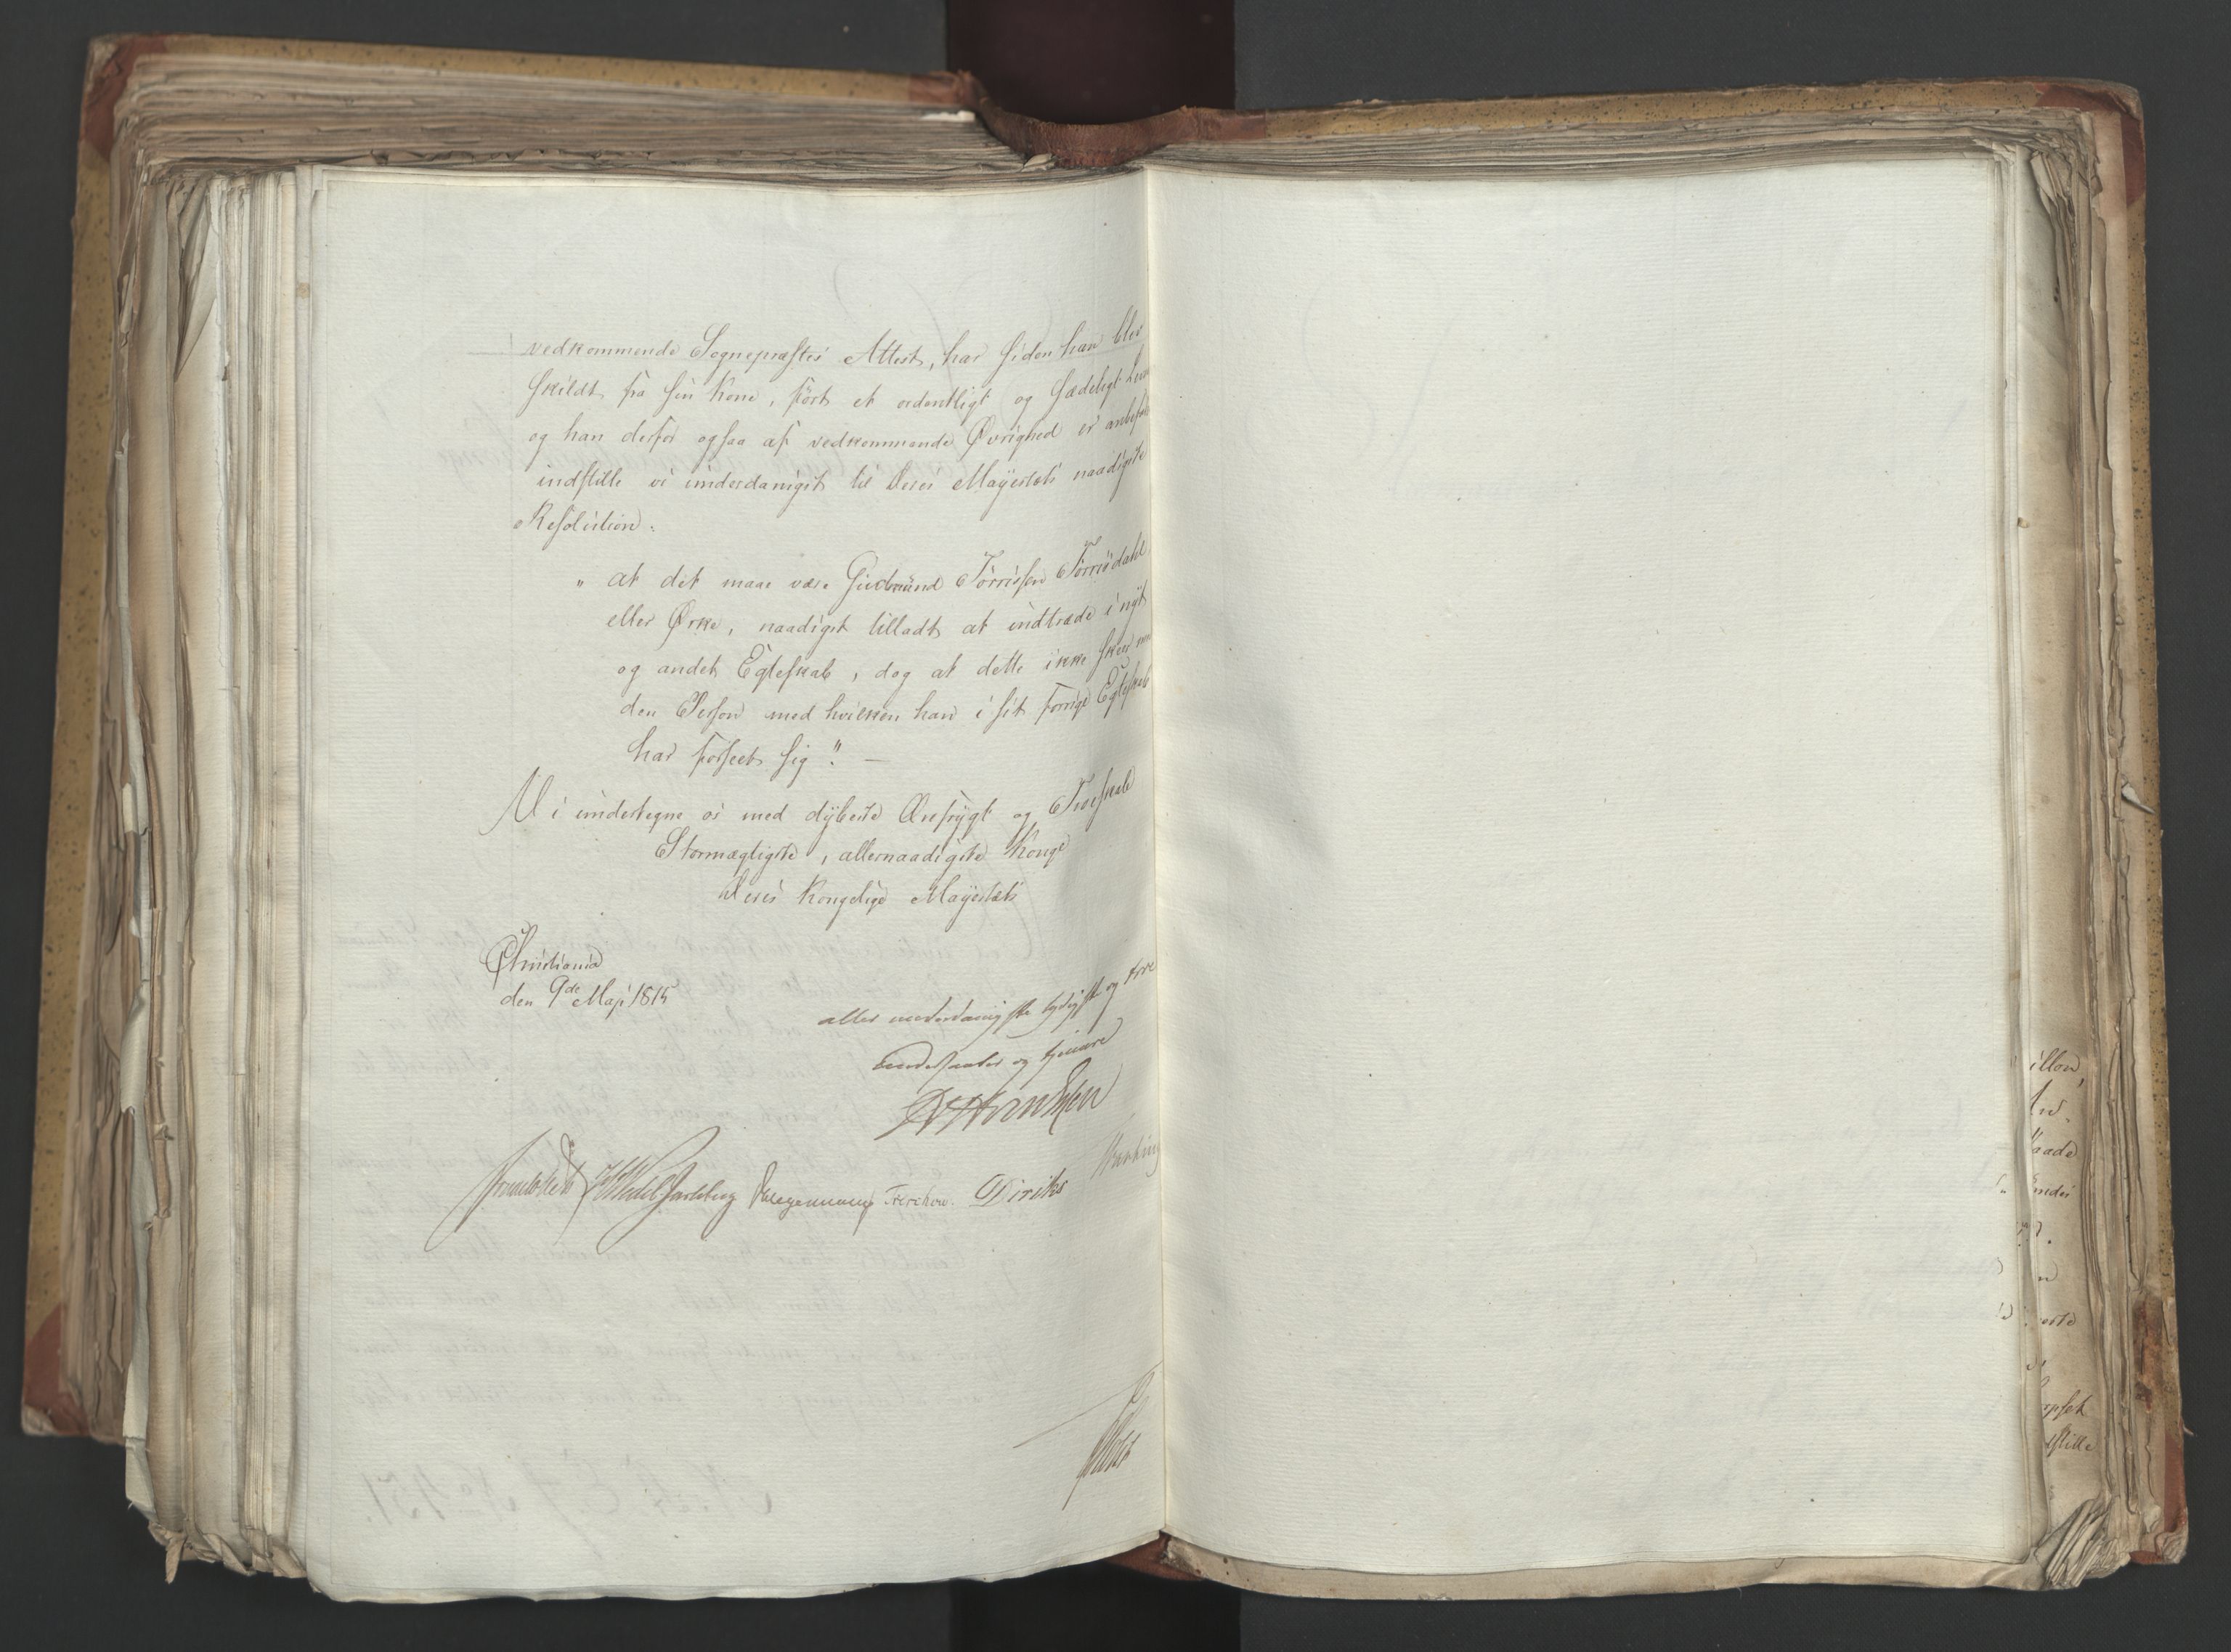 vedkommende Sognepræstes Attest, har siden han blev
skildt fra sin Kone, fört et ordentligt og sædeligt
og han derfor ogsaa af vedkommende Øvrighed er
indstille vi underdanigst til Deres Mayestæts naadigste
Resolution:
" at det maae være Gudmund Törrissen Törrisdahl
eller Ørke, naadigst tilladt at indtræde i nyt
og andet Egteskab, dog at dette ikke skeer
den Person med hvilken han i sit forrige Egteskab
har forseet sig". —
Vi undertegne os med dybeste Ærefrygt og Troeskab
Stormægtigste, allernaadigste Konge
Deres Kongelige Mayestæts
Christiania
den 9de Maji 1815
aller underdanigste lydigste og troe
undersaater og tjenere
Wedel Jarlsberg Treschow. Diriks
Holst